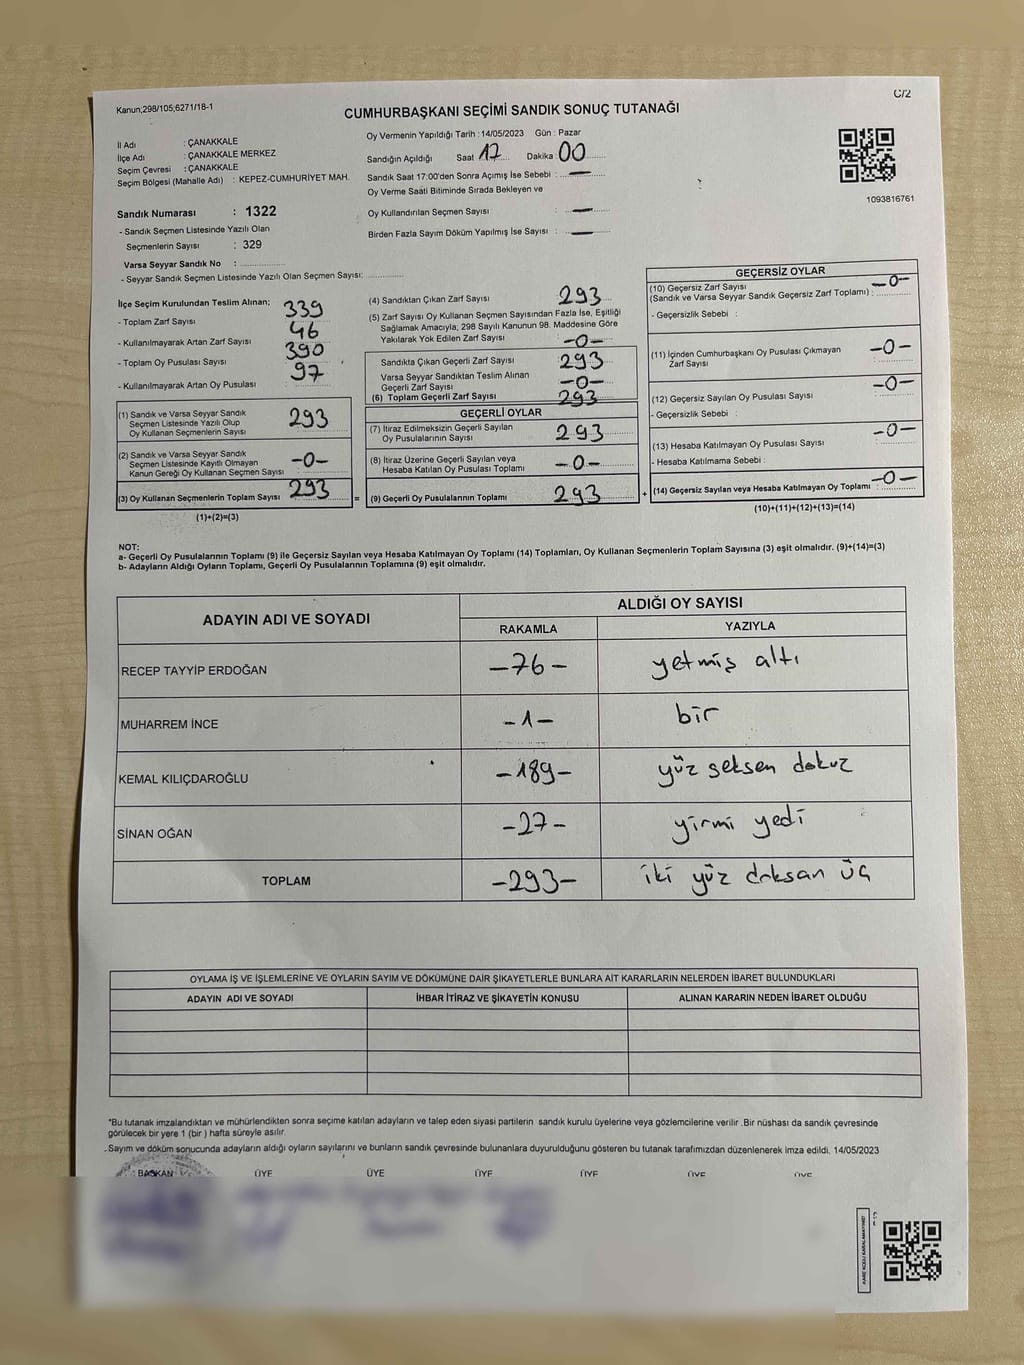 Kanun;298/105;6271/18-1
C/2
CUMHURBAŞKANI SEÇİMİ SANDIK SONUÇ TUTANAĞI
İl Adı : ÇANAKKALE
İlçe Adı : ÇANAKKALE MERKEZ
Seçim Çevresi : ÇANAKKALE
Seçim Bölgesi (Mahalle Adı) : KEPEZ-CUMHURİYET MAH.
Sandık Numarası : 1322
- Sandık Seçmen Listesinde Yazılı Olan
Seçmenlerin Sayısı : 329
Varsa Seyyar Sandık No :
- Seyyar Sandık Seçmen Listesinde Yazılı Olan Seçmen Sayısı:
Oy Vermenin Yapıldığı Tarih : 14/05/2023 Gün : Pazar
Sandığın Açıldığı Saat 17 Dakika 00
Sandık Saat 17:00'den Sonra Açımış İse Sebebi : —
Oy Verme Saati Bitiminde Sırada Bekleyen ve
Oy Kullandırılan Seçmen Sayısı : —
Birden Fazla Sayım Döküm Yapılmış İse Sayısı : —
1093816761
İlçe Seçim Kurulundan Teslim Alınan;
- Toplam Zarf Sayısı 339
- Kullanılmayarak Artan Zarf Sayısı : 46
- Toplam Oy Pusulası Sayısı : 390
- Kullanılmayarak Artan Oy Pusulası : 97
(1) Sandık ve Varsa Seyyar Sandık
Seçmen Listesinde Yazılı Olup
Oy Kullanan Seçmenlerin Sayısı 293
(2) Sandık ve Varsa Seyyar Sandık
Seçmen Listesinde Kayıtlı Olmayan
Kanun Gereği Oy Kullanan Seçmen Sayısı -0-
(3) Oy Kullanan Seçmenlerin Toplam Sayısı 293
(1)+(2)=(3)
=
(4) Sandıktan Çıkan Zarf Sayısı 293
(5) Zarf Sayısı Oy Kullanan Seçmen Sayısından Fazla İse, Eşitliği
Sağlamak Amacıyla, 298 Sayılı Kanunun 98. Maddesine Göre
Yakılarak Yok Edilen Zarf Sayısı : -0-
Sandıkta Çıkan Geçerli Zarf Sayısı 293
Varsa Seyyar Sandıktan Teslim Alınan
Geçerli Zarf Sayısı -0-
(6) Toplam Geçerli Zarf Sayısı 293
GEÇERLİ OYLAR
(7) İtiraz Edilmeksizin Geçerli Sayılan
Oy Pusulalarının Sayısı 293
(8) İtiraz Üzerine Geçerli Sayılan veya
Hesaba Katılan Oy Pusulası Toplamı -0-
(9) Geçerli Oy Pusulalarının Toplamı 293
+
GEÇERSİZ OYLAR
(10) Geçersiz Zarf Sayısı
(Sandık ve Varsa Seyyar Sandık Geçersiz Zarf Toplamı) : -0-
- Geçersizlik Sebebi :
(11) İçinden Cumhurbaşkanı Oy Pusulası Çıkmayan
Zarf Sayısı -0-
(12) Geçersiz Sayılan Oy Pusulası Sayısı -0-
- Geçersizlik Sebebi :
(13) Hesaba Katılmayan Oy Pusulası Sayısı -0-
- Hesaba Katılmama Sebebi :
(14) Geçersiz Sayılan veya Hesaba Katılmayan Oy Toplamı : -0-
(10)+(11)+(12)+(13)=(14)
NOT:
a- Geçerli Oy Pusulalarının Toplamı (9) ile Geçersiz Sayılan veya Hesaba Katılmayan Oy Toplamı (14) Toplamları, Oy Kullanan Seçmenlerin Toplam Sayısına (3) eşit olmalıdır. (9)+(14)=(3)
b- Adayların Aldığı Oyların Toplamı, Geçerli Oy Pusulalarının Toplamına (9) eşit olmalıdır.
ADAYIN ADI VE SOYADI
ALDIĞI OY SAYISI
RAKAMLA YAZIYLA
RECEP TAYYİP ERDOĞAN -76- yetmiş altı
MUHARREM İNCE -1- bir
KEMAL KILIÇDAROĞLU -189- yüz seksen dokuz
SİNAN OĞAN -27- yirmi yedi
TOPLAM -293- iki yüz doksan üç
OYLAMA İŞ VE İŞLEMLERİNE VE OYLARIN SAYIM VE DÖKÜMÜNE DAİR ŞİKAYETLERLE BUNLARA AİT KARARLARIN NELERDEN İBARET BULUNDUKLARI
ADAYIN ADI VE SOYADI İHBAR İTİRAZ VE ŞİKAYETİN KONUSU ALINAN KARARIN NEDEN İBARET OLDUĞU
*Bu tutanak imzalandıktan ve mühürlendikten sonra seçime katılan adayların ve talep eden siyasi partilerin sandık kurulu üyelerine veya gözlemcilerine verilir .Bir nüshası da sandık çevresinde
görülecek bir yere 1 (bir ) hafta süreyle asılır.
Sayım ve döküm sonucunda adayların aldığı oyların sayılarını ve bunların sandık çevresinde bulunanlara duyurulduğunu gösteren bu tutanak tarafımızdan düzenlenerek imza edildi. 14/05/2023
BAŞKAN ÜYE ÜYE ÜYE ÜYE ÜYE ÜYE
KARE KODU KARALAMAYINIZ!